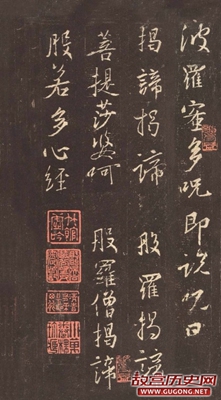 波羅蜜多呪即說呪曰
揭諦揭諦 般羅揭諦
般羅僧揭諦
菩提莎婆呵
般若多心經
故宫历史网